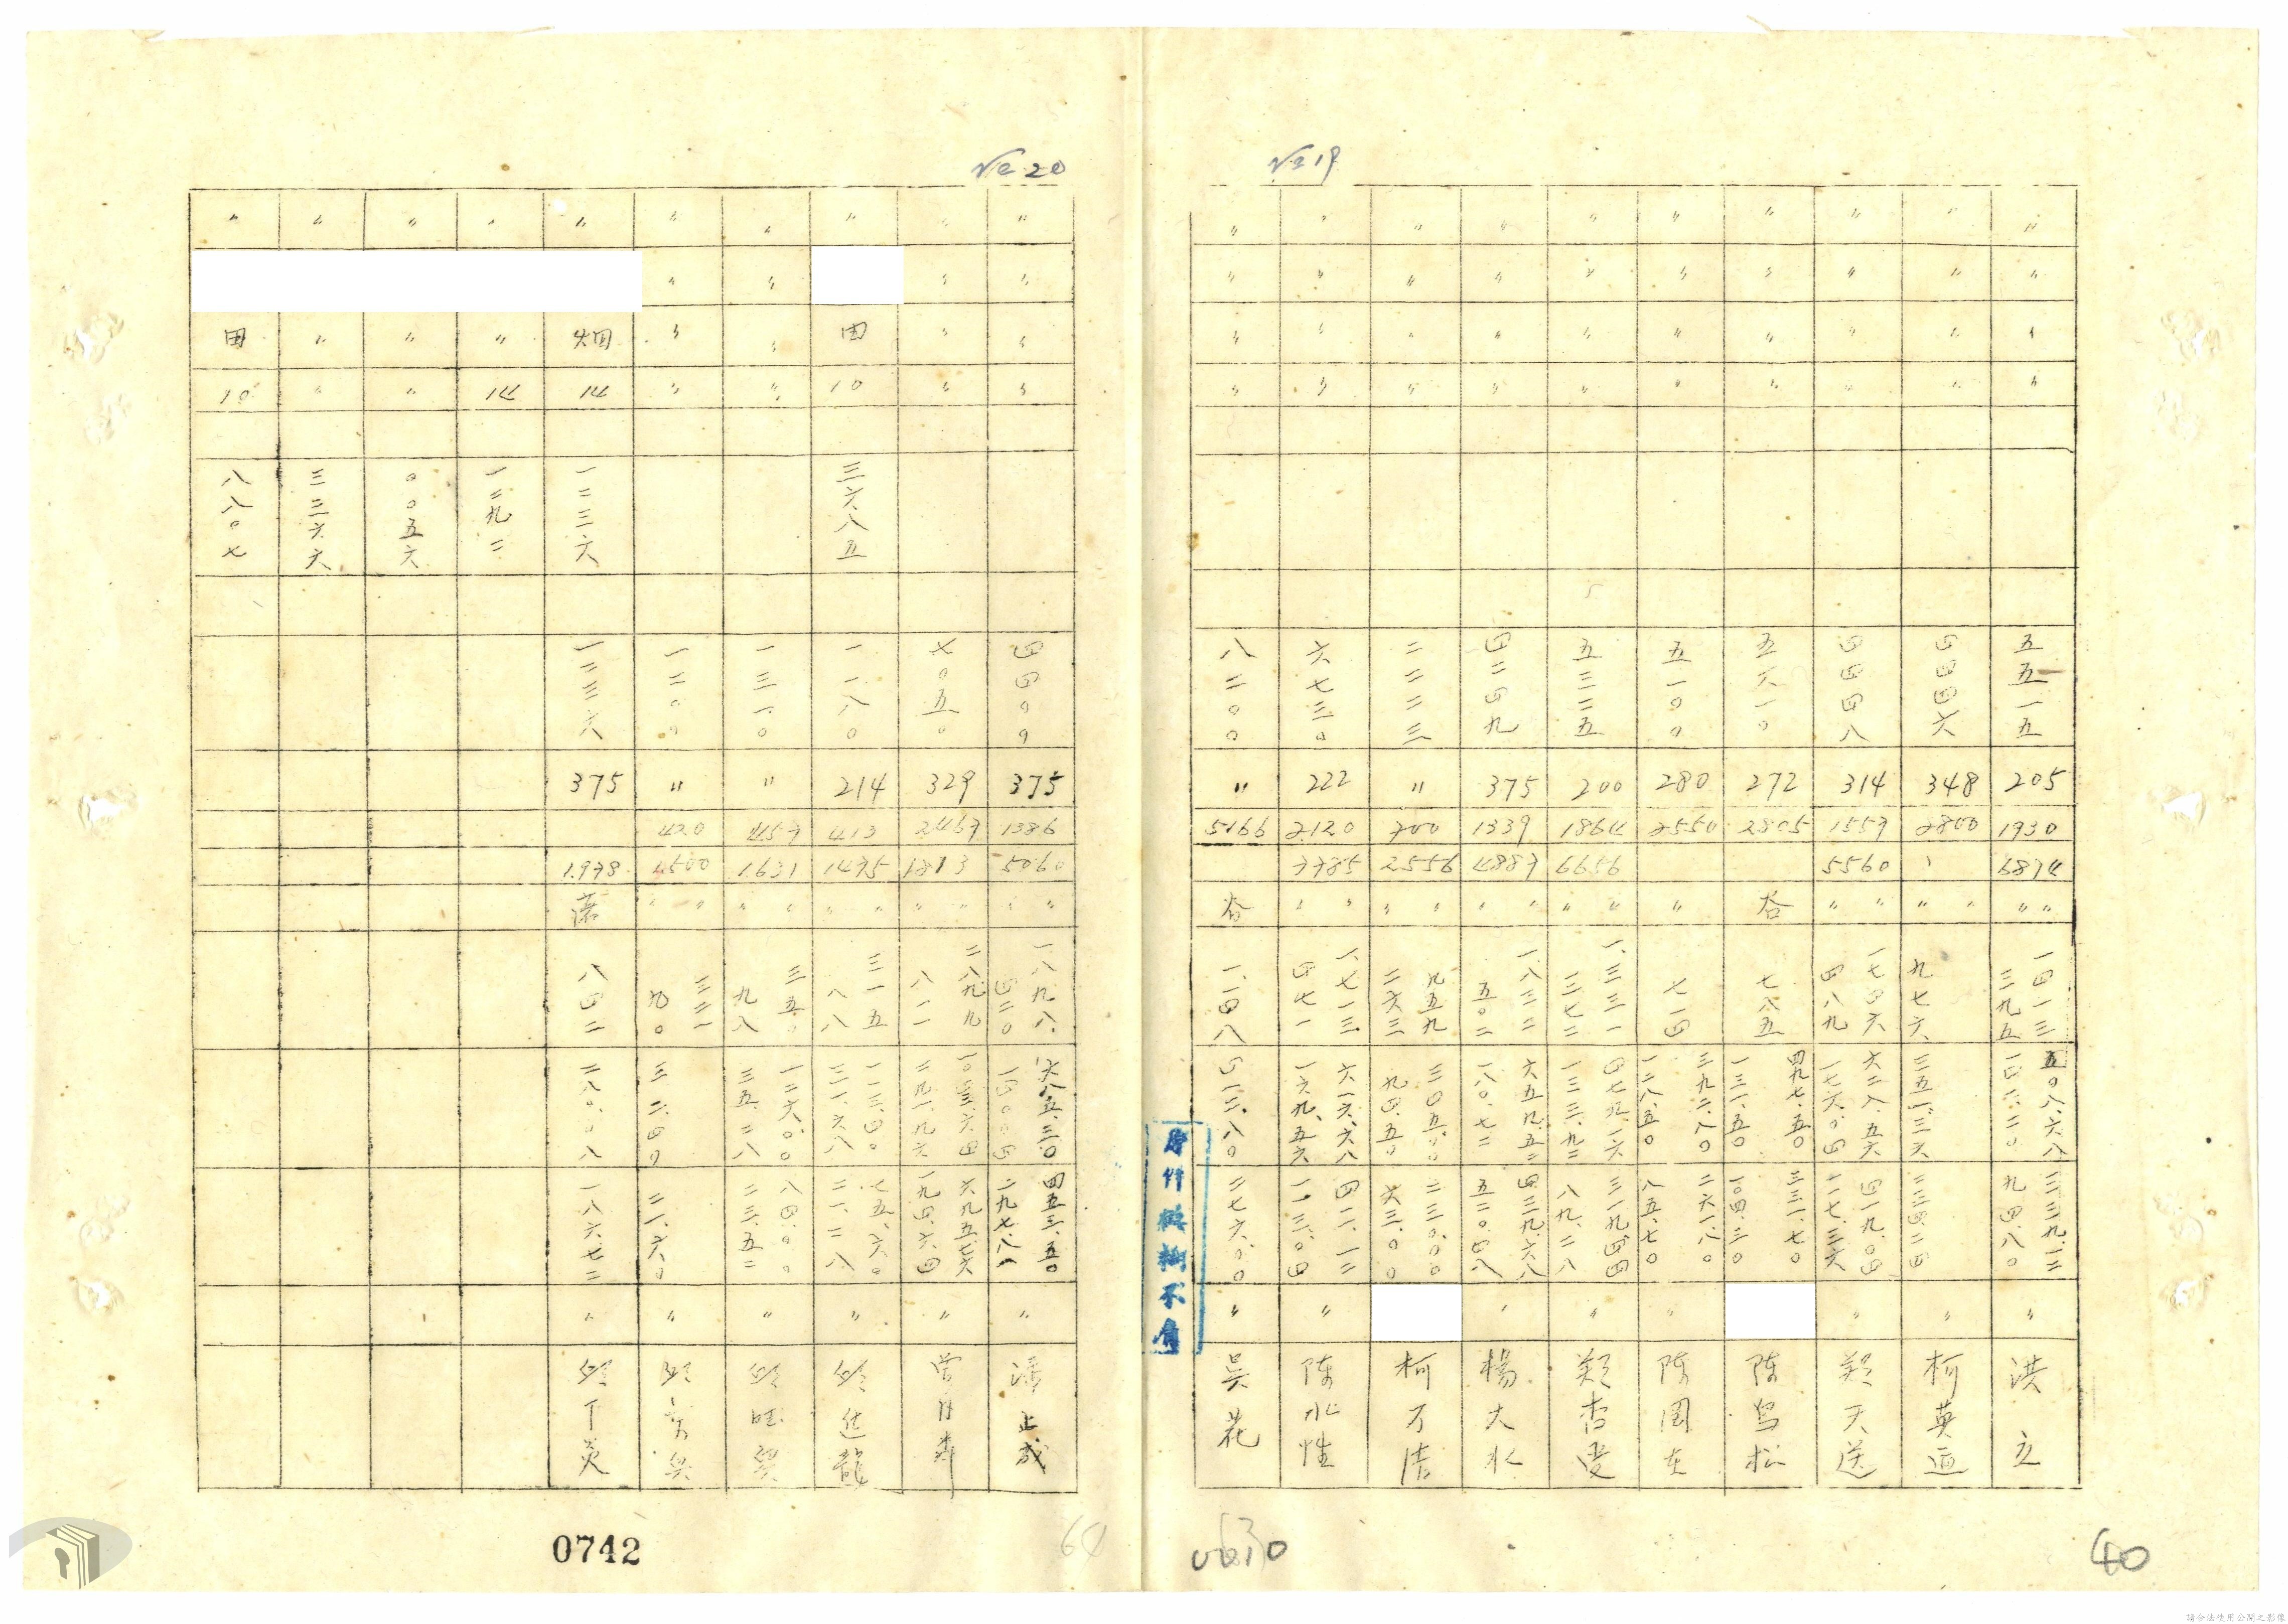 №19
〃 〃 〃 〃 五五一五 205 1930 6874 〃〃 一四一三 三九五 五〇八.六八 一四二.二〇 三三九.一二 九四.八〇 〃 洪立
〃 〃 〃 〃 四四四六 348 2800 〃〃 九七六 三五一.三六 二三四.二四 〃 柯英逥
〃 〃 〃 〃 四四四八 314 1557 5560 〃〃 一七四六 四八九 六二八.五六 一七六.〇四 四一九.〇四 一一七.三六 〃 鄭天送
〃 〃 〃 〃 五六一〇 272 2805 谷 七八五 四九七.五〇 一三一.五〇 三三一.七〇 一〇四.三〇 陳鳥松
〃 〃 〃 〃 五一〇〇 280 2550 〃 七一四 三九二.八〇 一二八.五〇 二六一.八〇 八五.七〇 〃 陳国在
〃 〃 〃 〃 五三二五 200 1864 6656 〃〃 一.三三一 三七二 四七九.一六 一三三.九二 三一九.四四 八九.二八 〃 鄭杏
〃 〃 〃 〃 四二四九 375 1339 4887 〃〃 一.八三二 五〇二 六五九.五二 一八〇.七二 四三九.六八 五二〇.四八 〃 楊大水
〃 〃 〃 〃 二二二三 〃 700 2556 〃〃 九五九 二六三 三四五.〇〇 九四.五〇 二三〇.〇〇 六三.〇〇 柯万清
〃 〃 〃 〃 六七三〇 222 2120 7785 〃〃 一.七一三 四七一 六一六.六八 一六九.五六 四一一.一二 一一三.〇四 〃 陳水性
〃 〃 〃 〃 八二〇〇 〃 5166 谷 一.一四八 四一三.八〇 二七六.〇〇 〃 吳花
40
№20
〃 〃 〃 〃 四四〇〇 375 1386 5060 〃〃 一八九八 四二〇 六八五.三〇 一四〇.〇四 四五三.五〇 二九七.八八 〃 正成
〃 〃 〃 〃 七〇五〇 329 2467 1813 〃〃 二八九九 八一一 一〇四三.六四 二九一.九六 六九五.七六 一九四.六四 〃
〃 田 10 三六八五 一一八〇 214 413 1475 〃〃 三一五 八八 一一三.四〇 三一.六八 七五.六〇 二一.二八 〃 邱進龍
〃 〃 〃 〃 一三一〇 〃 457 1.631 〃〃 三五〇 九八 一二六.〇〇 三五.二八 八四.〇〇 二三.五二 〃 邱旺
〃 〃 〃 〃 一二〇〇 〃 420 1.500 〃〃 三二一 九〇 三二.四〇 二一.六〇 〃 邱
〃 烟 14 一二三六 一二三六 375 1.978 藷 八四二 二八〇.〇八 一八六.七二 〃 邱丁炎
〃 〃 14 一二九二
〃 〃 〃 〇〇五六
〃 〃 〃 三三六六
〃 田 10 八八〇七
原件模糊不清
0742
64
請合法使用公開之影像